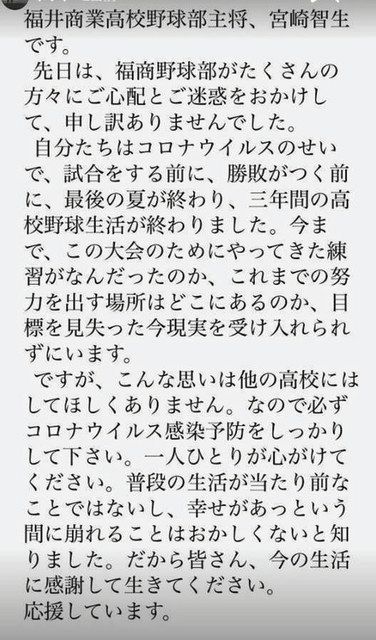 福井商業高校野球部主将、宮崎智生
です。
先日は、福商野球部がたくさんの
方々にご心配とご迷惑をおかけし
て、申し訳ありませんでした。
自分たちはコロナウイルスのせい
で、試合をする前に、勝敗がつく前
に、最後の夏が終わり、三年間の高
校野球生活が終わりました。今ま
で、この大会のためにやってきた練
習がなんだったのか、これまでの努
力を出す場所はどこにあるのか、目
標を見失った今現実を受け入れられ
ずにいます。
ですが、こんな思いは他の高校には
してほしくありません。なので必ず
コロナウイルス感染予防をしっかり
して下さい。一人ひとりが心がけて
ください。普段の生活が当たり前な
ことではないし、幸せがあっという
間に崩れることはおかしくないと知
りました。だから皆さん、今の生活
に感謝して生きてください。
応援しています。